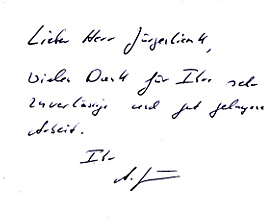 Lieber Herr Jürgenlienk,
vielen Dank für Ihre sehr
zuverlässige und gut gelungene
Arbeit.
Ihr